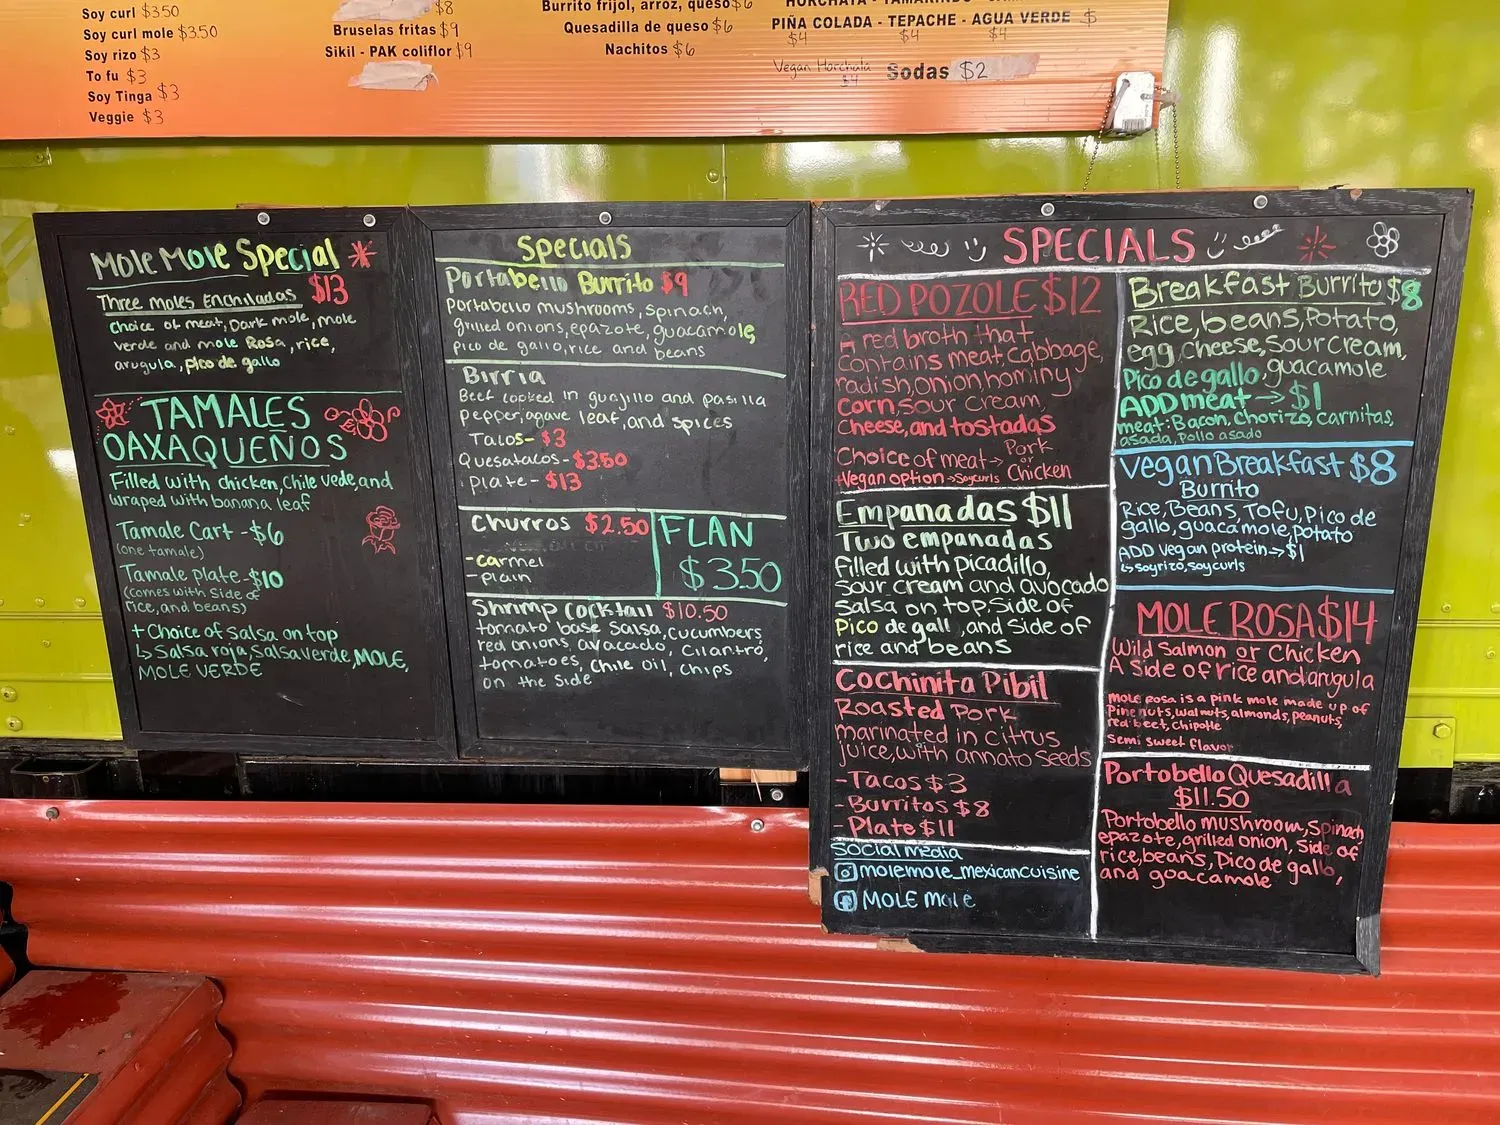 Soy curl $3.50
Soy curl mole $3.50
Soy rizo $3
To fu $3
Soy Tinga $3
Veggie $3
$8
Bruselas fritas $9
Sikil - PAK coliflor $9
Burrito frijol, arroz, queso $6
Quesadilla de queso $6
Nachitos $6
HORCHATA - TAMARINDO -
PIÑA COLADA - TEPACHE - AGUA VERDE $
$4 $4 $4
Vegan Horchata
$4
Sodas $2
Mole Mole Special
Three moles Enchiladas $13
choice of meat, Dark mole, mole
verde and mole Rosa, rice,
arugula, pico de gallo
TAMALES
OAXAQUEÑOS
Filled with chicken, Chile vede, and
wraped with banana leaf
Tamale Cart - $6
(one tamale)
Tamale plate - $10
(comes with side of
rice, and beans)
+ Choice of salsa on top
↳ Salsa roja, Salsa verde, MOLE,
MOLE VERDE
Specials
Portabello Burrito $9
Portabello mushrooms, spinach,
grilled onions, epazote, guacamole,
pico de gallo, rice and beans
Birria
Beef cooked in guajillo and pasilla
pepper, agave leaf, and spices
Tacos - $3
Quesatacos - $3.50
plate - $13
Churros $2.50
- carmel
- plain
FLAN
$3.50
Shrimp cocktail $10.50
tomato base salsa, cucumbers,
red onions, avacado, cilantro,
tomatoes, Chile oil, chips
on the side
SPECIALS
RED POZOLE $12
A red broth that
contains meat, cabbage,
radish, onion, hominy
corn, sour cream,
cheese, and tostadas
Choice of meat → Pork
or
Chicken
Vegan option → Soycurls
Empanadas $11
Two empanadas
filled with picadillo,
sour cream and avocado
salsa on top. Side of
Pico de gall, and side of
rice and beans
Cochinita Pibil
Roasted Pork
marinated in citrus
juice, with annato seeds
- Tacos $3
- Burritos $8
- Plate $11
Social Media
molemole_mexicancuisine
MOLE Mole
Breakfast Burrito $8
Rice, beans, Potato,
egg, cheese, sour cream,
Pico de gallo, guacamole
ADD meat → $1
meat: Bacon, Chorizo, carnitas,
asada, pollo asado
Vegan Breakfast $8
Burrito
Rice, Beans, Tofu, Pico de
gallo, guacamole, potato
ADD vegan protein → $1
↳ soyrizo, soycurls
MOLE ROSA $14
Wild Salmon or Chicken
A side of rice and arugula
Mole rosa is a pink mole made up of
Pinenuts, walnuts, almonds, peanuts,
red beet, chipotle
Semi sweet flavor
Portobello Quesadilla
$11.50
Portobello mushroom, Spinach,
epazote, grilled onion, Side of
rice, beans, Pico de gallo,
and guacamole